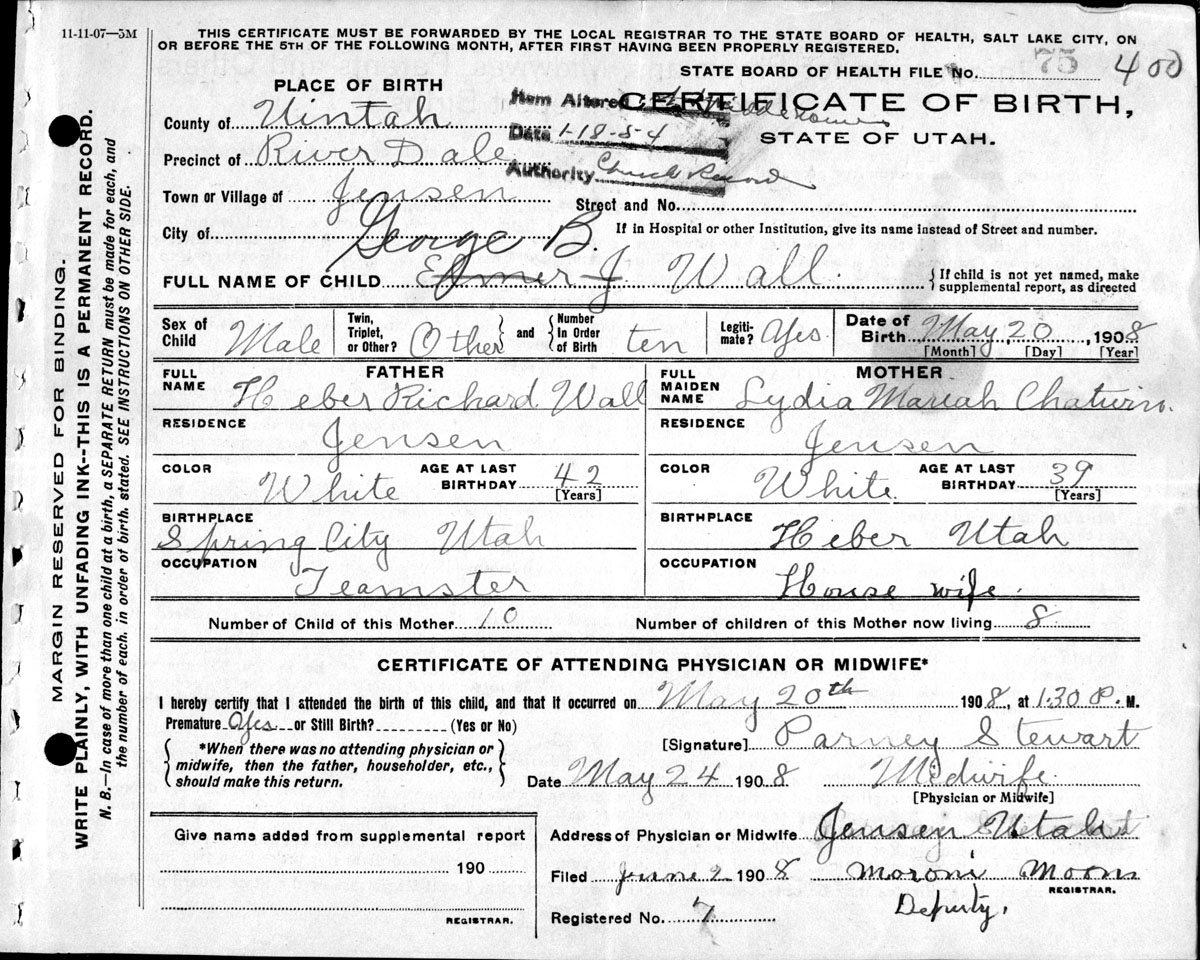 11-11-07—5M
THIS CERTIFICATE MUST BE FORWARDED BY THE LOCAL REGISTRAR TO THE STATE BOARD OF HEALTH, SALT LAKE CITY, ON
OR BEFORE THE 5TH OF THE FOLLOWING MONTH, AFTER FIRST HAVING BEEN PROPERLY REGISTERED.
STATE BOARD OF HEALTH FILE No. 75 400
PLACE OF BIRTH
Item Altered
CERTIFICATE OF BIRTH,
County of Uintah
Date 1-18-54
STATE OF UTAH.
Precinct of River Dale
Authority Church Record
Town or Village of Jensen
Street and No.
City of
If in Hospital or other Institution, give its name instead of Street and number.
George B.
FULL NAME OF CHILD Elmer J. Wall
If child is not yet named, make
supplemental report, as directed
Sex of Child Male Twin, Triplet, or Other? Other and Number In Order of Birth ten Legiti-mate? Yes Date of Birth May 20, 1908
[Month] [Day] [Year]
FATHER MOTHER
FULL NAME Heber Richard Wall FULL MAIDEN NAME Lydia Mariah Chatwin.
RESIDENCE Jensen RESIDENCE Jensen
COLOR White AGE AT LAST BIRTHDAY 42 [Years] COLOR White. AGE AT LAST BIRTHDAY 39 [Years]
BIRTHPLACE Spring City Utah BIRTHPLACE Heber Utah
OCCUPATION Teamster OCCUPATION House wife.
Number of Child of this Mother 10 Number of children of this Mother now living 8
CERTIFICATE OF ATTENDING PHYSICIAN OR MIDWIFE*
I hereby certify that I attended the birth of this child, and that it occurred on May 20th 1908, at 1:30 P. M.
Premature Yes or Still Birth? (Yes or No)
*When there was no attending physician or
midwife, then the father, householder, etc.,
should make this return.
[Signature] Parney Stewart
Date May 24 1908 Midwife
[Physician or Midwife]
Give name added from supplemental report
190
REGISTRAR.
Address of Physician or Midwife Jensen Utah
Filed June 2 1908 Moroni Moon
REGISTRAR.
Deputy.
Registered No. 7
MARGIN RESERVED FOR BINDING.
WRITE PLAINLY, WITH UNFADING INK--THIS IS A PERMANENT RECORD.
N. B.—In case of more than one child at a birth, a SEPARATE RETURN must be made for each, and
the number of each, in order of birth, stated. SEE INSTRUCTIONS ON OTHER SIDE.